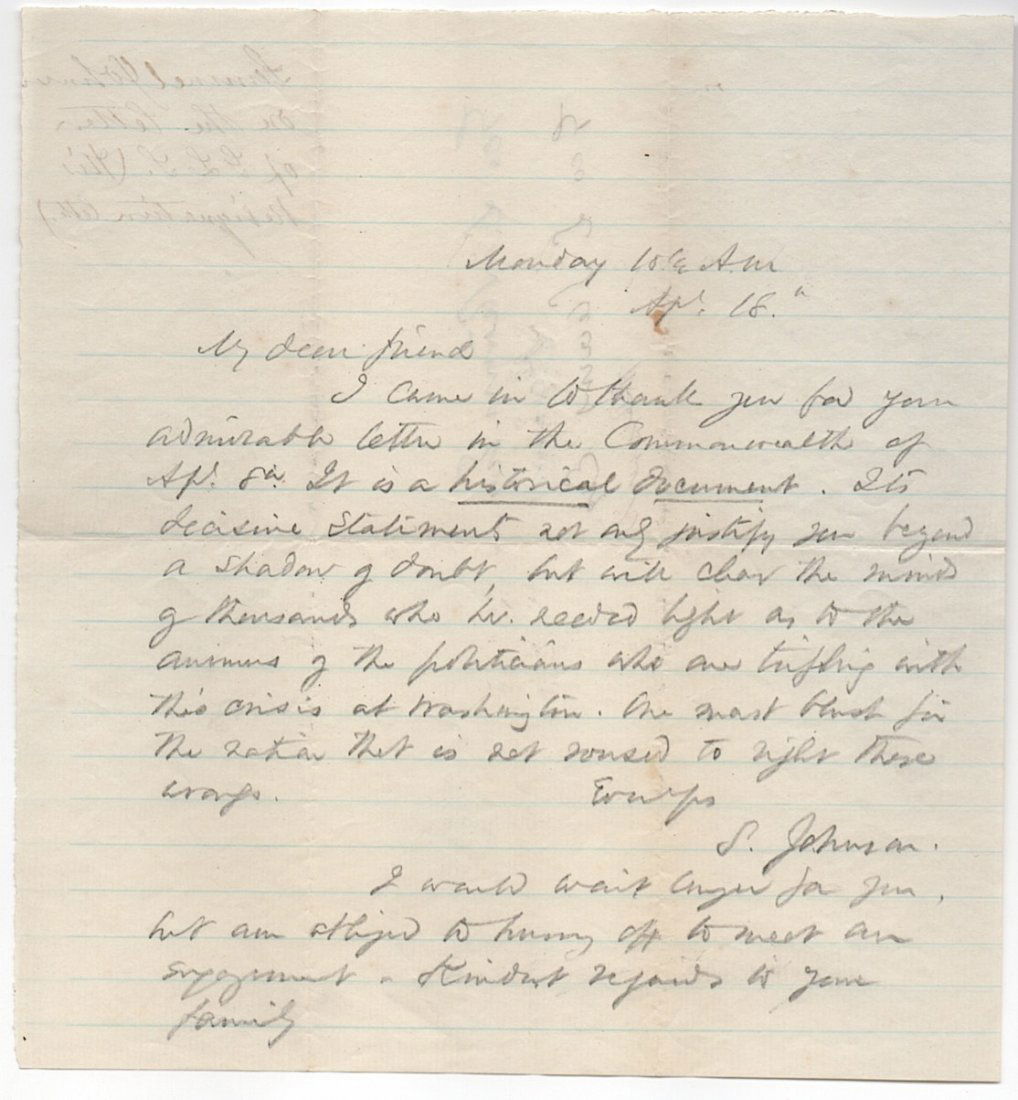 Monday 10½ A.M
Apl. 18.
My dear friend
I came in to thank you for your
admirable letter in the Commonwealth of
Apl. 8th. It is a historical document. Its
decisive statements not only justify you beyond
a shadow of doubt, but will clear the minds
of thousands who hv. needed light as to the
animus of the politicians who are trifling with
this crisis at Washington. One must blush for
the nation that is not roused to right these
wrongs.
S. Johnson.
I would wait longer for you,
but am obliged to hurry off to meet an
engagement - Kindest regards to your
family
Samuel Johnson
on the letter
of (His
Resignation